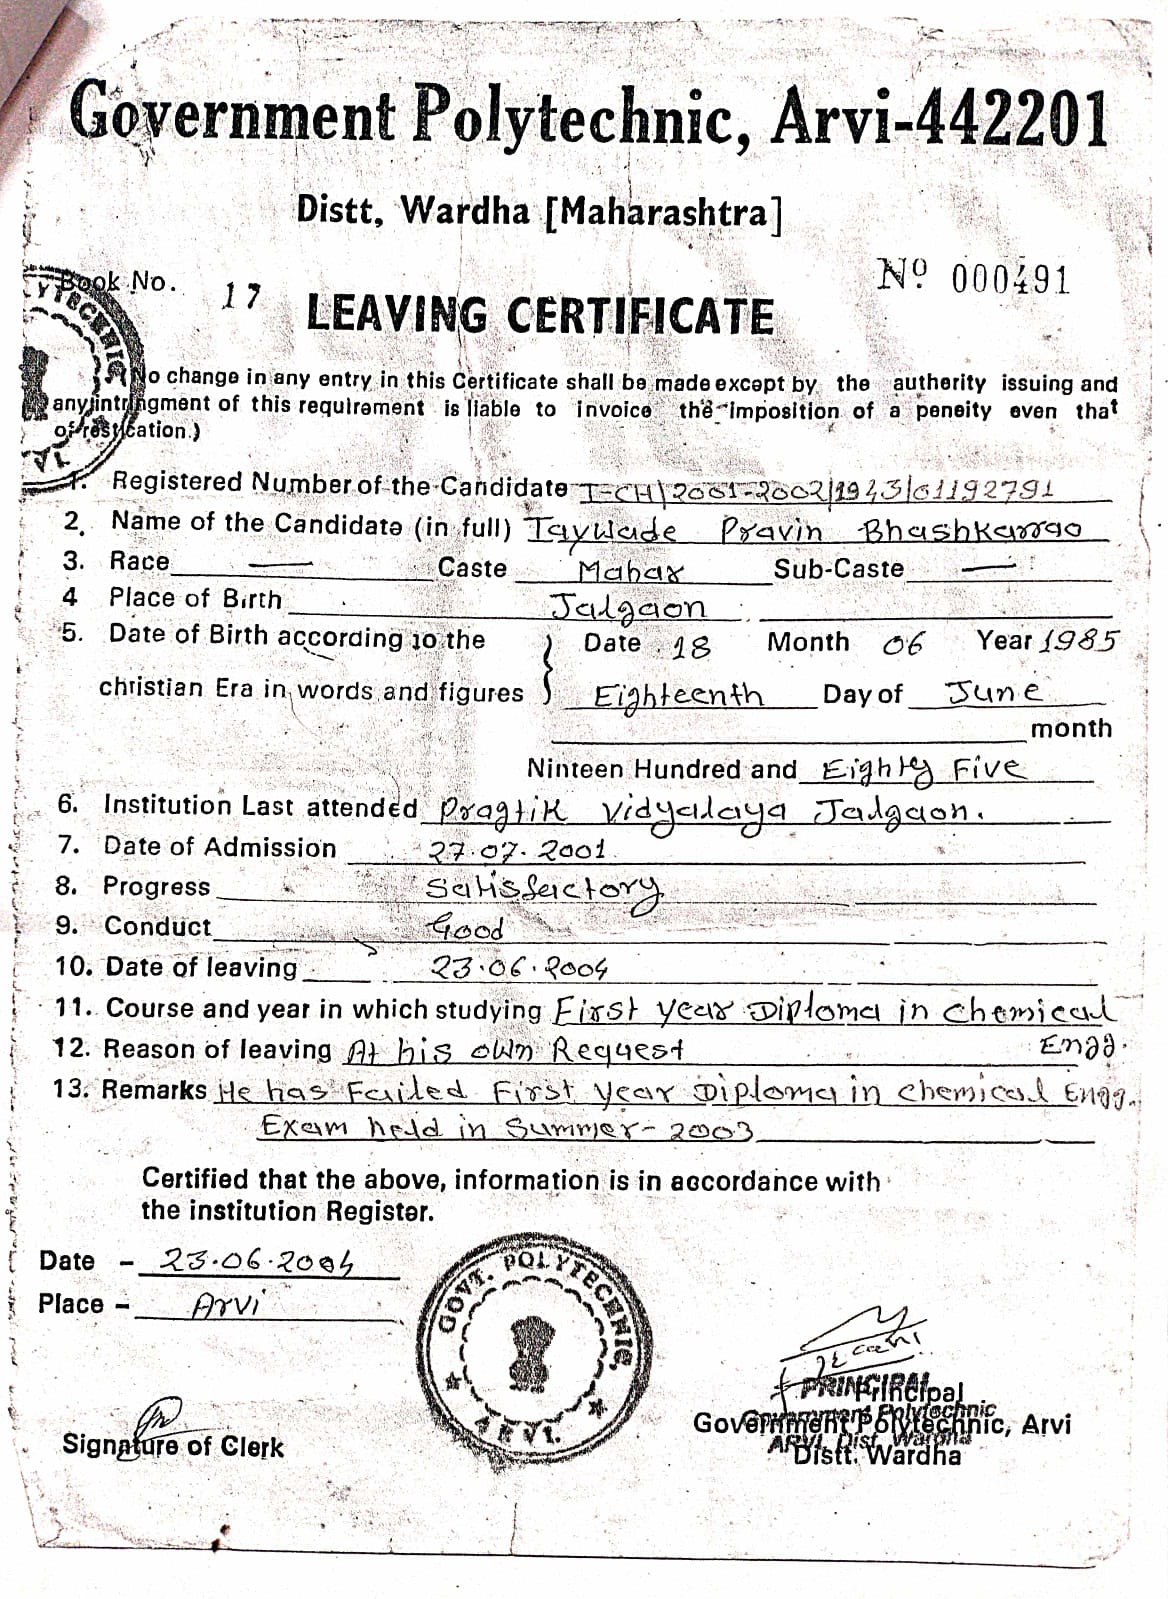 Government Polytechnic, Arvi-442201
Distt, Wardha [Maharashtra]
Book No. 17
Nº 000491
LEAVING CERTIFICATE
No change in any entry in this Certificate shall be made except by the autherity issuing and
any intringment of this requirement is liable to invoice the imposition of a peneity even that
of restication.)
1. Registered Number of the Candidate I-CH/2001-2002/1943/01192791
2. Name of the Candidate (in full) Taywade Pravin Bhashkarrao
3. Race — Caste Mahar Sub-Caste —
4 Place of Birth Jalgaon
5. Date of Birth according to the } Date 18 Month 06 Year 1985
christian Era in words and figures } Eighteenth Day of June
month
Ninteen Hundred and Eighty Five
6. Institution Last attended Pragtik Vidyalaya Jalgaon.
7. Date of Admission 27.07.2001
8. Progress Satisfactory
9. Conduct Good
10. Date of leaving 23.06.2004
11. Course and year in which studying First year Diploma in Chemical
Engg.
12. Reason of leaving At his own Request
13. Remarks He has Failed First Year Diploma in Chemical Engg.
Exam held in Summer-2003
Certified that the above, information is in accordance with
the institution Register.
Date - 23.06.2004
Place - Arvi
GOVT. POLYTECHNIC, ARVI.
Signature of Clerk
PRINCIPAL
Principal
Government Polytechnic
Government Polytechnic, Arvi
ARVI, Dist. Wardha
Distt. Wardha